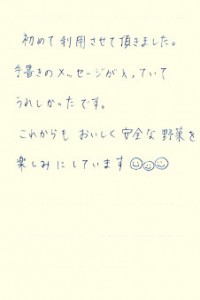 初めて利用させて頂きました。
手書きのメッセージが入っていて
うれしかったです。
これからも おいしく安全な野菜を
楽しみにしています☺☺☺